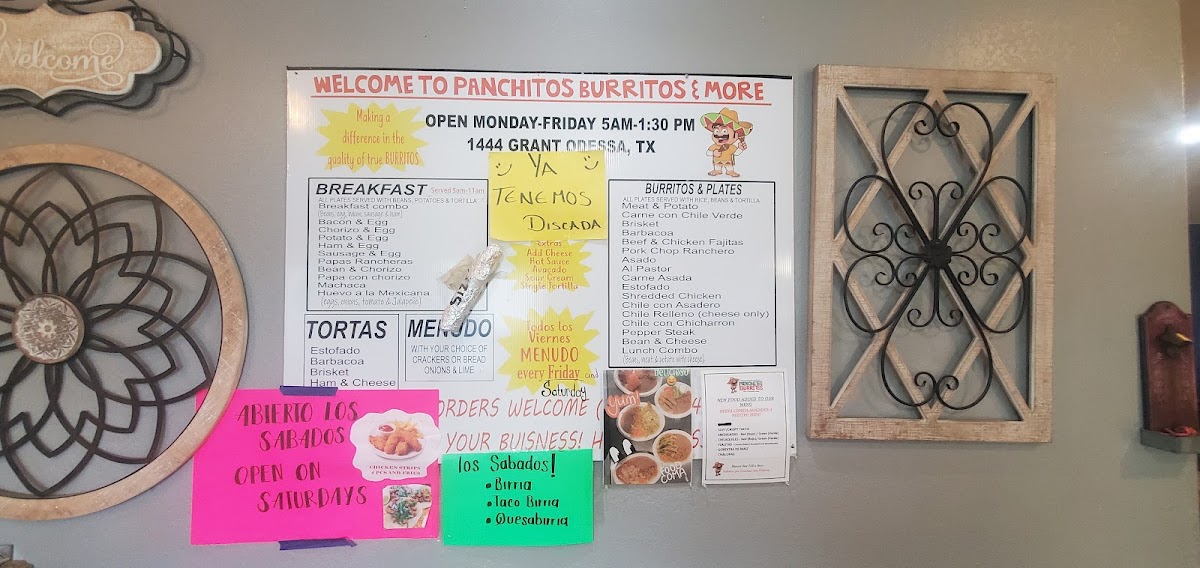 Welcome
WELCOME TO PANCHITOS BURRITOS & MORE
Making a
difference in the
quality of true BURRITOS
OPEN MONDAY-FRIDAY 5AM-1:30 PM
1444 GRANT ODESSA, TX
YA
TENEMOS
DISCADA
BREAKFAST Served 5am-11am
ALL PLATES SERVED WITH BEANS, POTATOES & TORTILLA
Breakfast combo
(Beans, egg, bacon, sausage & ham)
Bacon & Egg
Chorizo & Egg
Potato & Egg
Ham & Egg
Sausage & Egg
Papas Rancheras
Bean & Chorizo
Papa con chorizo
Machaca
Huevo a la Mexicana
(eggs, onions, tomato & Jalapeño)
Extras
Add Cheese
Hot Sauce
Avocado
Sour Cream
Single Tortilla
BURRITOS & PLATES
ALL PLATES SERVED WITH RICE, BEANS & TORTILLA
Meat & Potato
Carne con Chile Verde
Brisket
Barbacoa
Beef & Chicken Fajitas
Pork Chop Ranchero
Asado
Al Pastor
Carne Asada
Estofado
Shredded Chicken
Chile con Asadero
Chile Relleno (cheese only)
Chile con Chicharron
Pepper Steak
Bean & Cheese
Lunch Combo
(Beans, meat & potato with cheese)
TORTAS
Estofado
Barbacoa
Brisket
Ham & Cheese
MENUDO
WITH YOUR CHOICE OF
CRACKERS OR BREAD
ONIONS & LIME
Todos los
Viernes
MENUDO
every Friday and
Saturday
ORDERS WELCOME (
YOUR BUISNESS!
ABIERTO LOS
SABADOS
OPEN ON
SATURDAYS
CHICKEN STRIPS
los Sabados!
• Birria
• Taco Birria
• Quesabirria
Yum
BURRITOS
NEW FOOD ADDED TO OUR
MENU